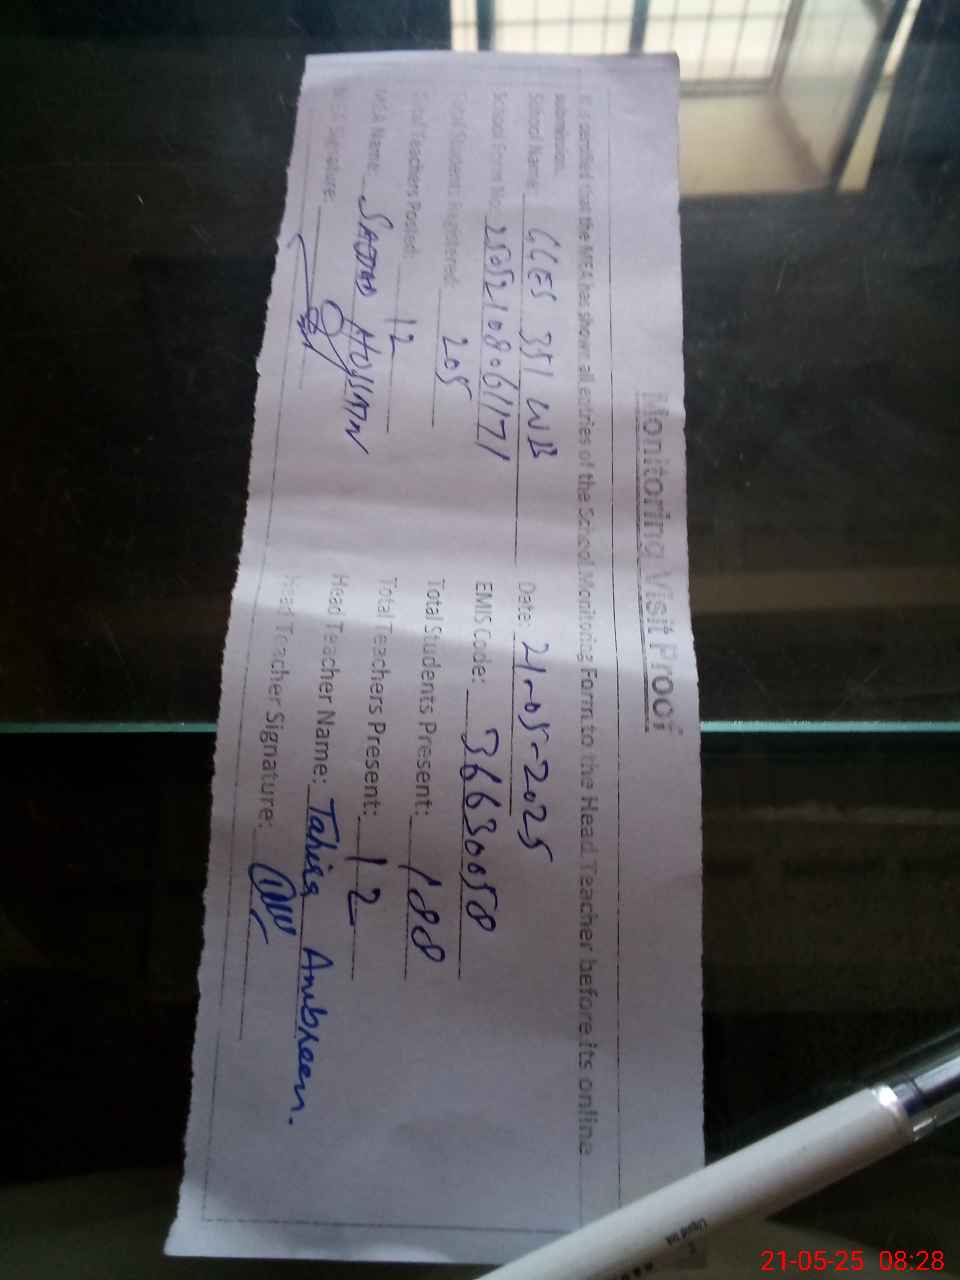 Monitoring Visit Proof
It is certified that the MEA has shown all entries of the School Monitoring Form to the Head Teacher before its online
submission.
School Name: GGES 351 WB Date: 21-05-2025
School Form No: 25052108061171 EMIS Code: 36630058
Total Student Registered: 205 Total Students Present: 188
Total Teachers Posted: 12 Total Teachers Present: 12
MEA Name: HUSSAIN Head Teacher Name: Tahira Ambreen.
MEA Signature: Head Teacher Signature:
Liquid Ink
21-05-25 08:28